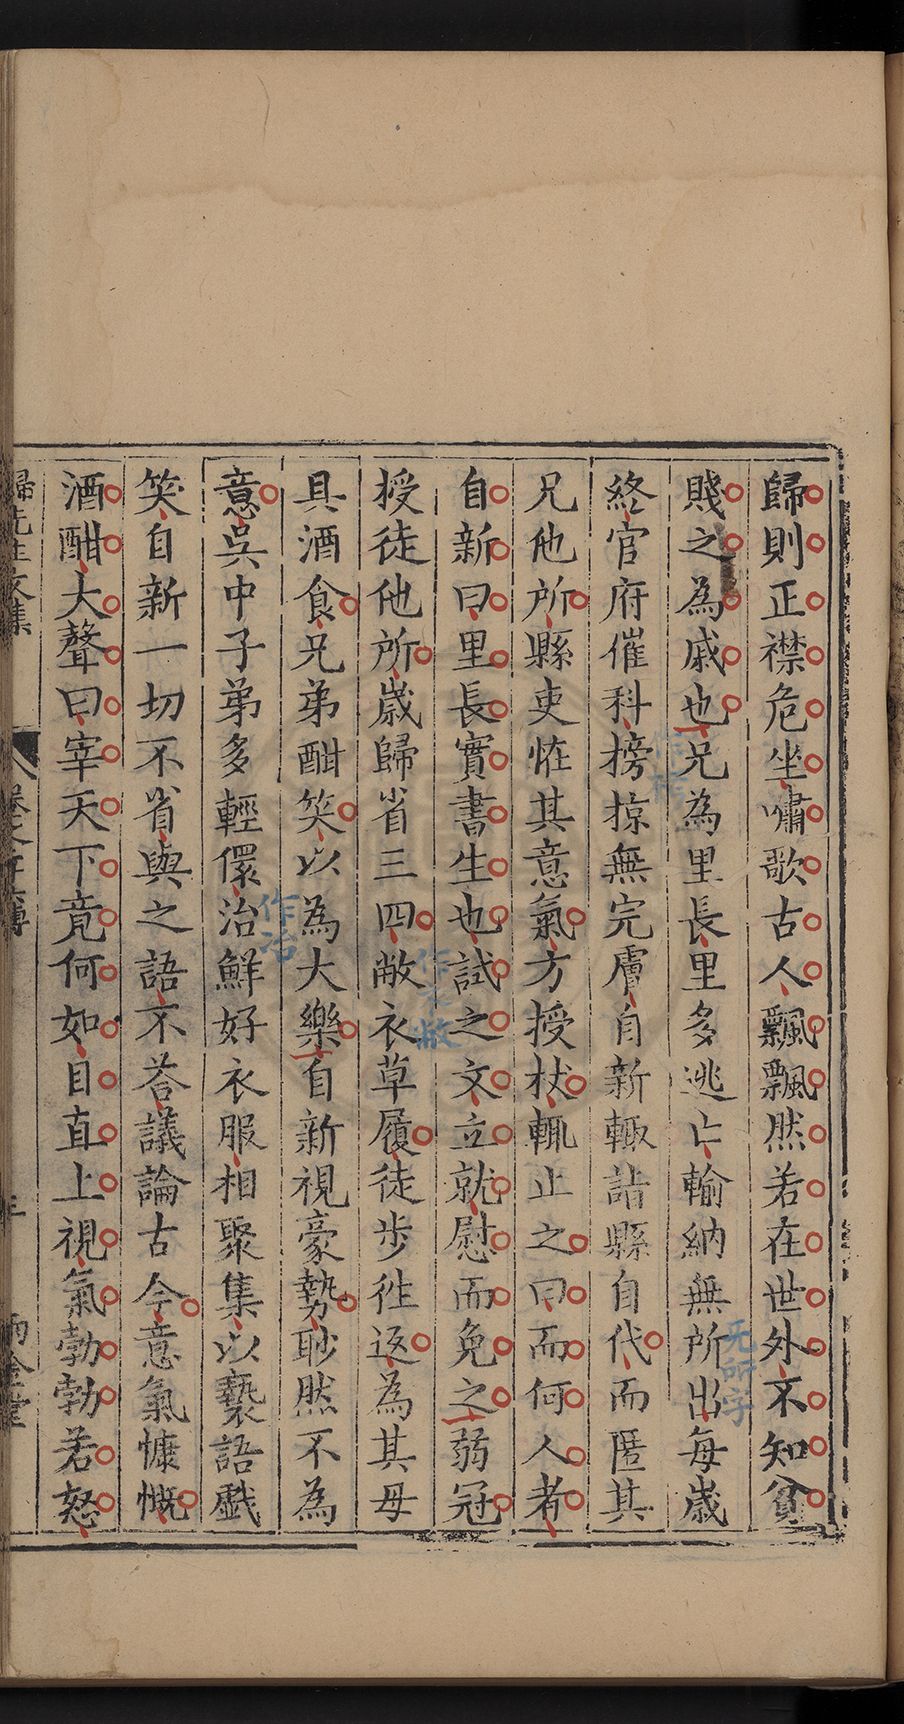 歸則正襟危坐嘯歌古人飄飄然若在世外不知貧
賤之為戚也兄為里長里多逃亡輸納無所出每歲
終官府催科搒掠無完膚自新輙詣縣自代而匿其
兄他所縣吏恠其意氣方授杖輒止之曰而何人者
自新曰里長實書生也試之文立就慰而免之弱冠
授徒他所歲歸省三四敝衣草履徒步徃返為其母
具酒食兄弟酣笑以為大樂自新視豪勢眇然不為
意吳中子弟多輕儇治鮮好衣服相聚集以褻語戲
笑自新一切不省與之語不荅議論古今意氣慷慨
酒酣大聲曰宰天下竟何如目直上視氣勃勃若怒
歸先生文集
作治
无所字